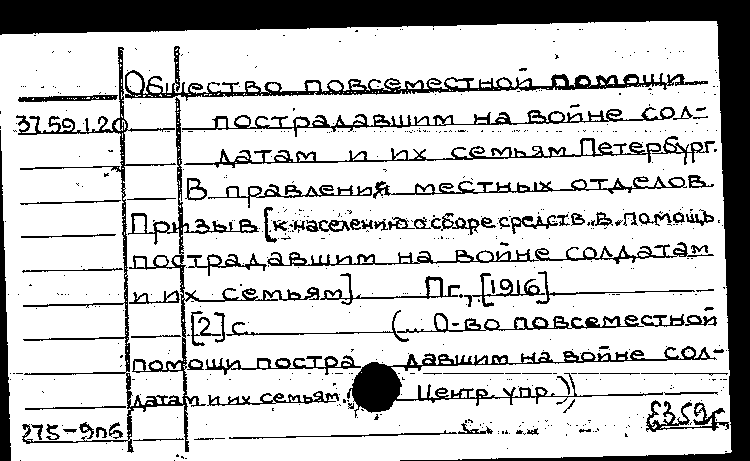 Общество повсеместной помощи
37.59.1.20 пострадавшим на войне сол-
датам и их семьям. Петербург.
В правления местных отделов.
Призыв [к населению о сборе средств в помощь
пострадавшим на войне солдатам
и их семьям]. Пг., [1916].
[2] с. (... О-во повсеместной
помощи постра давшим на войне сол-
датам и их семьям. Центр. упр.))
275-9пб Е359г.